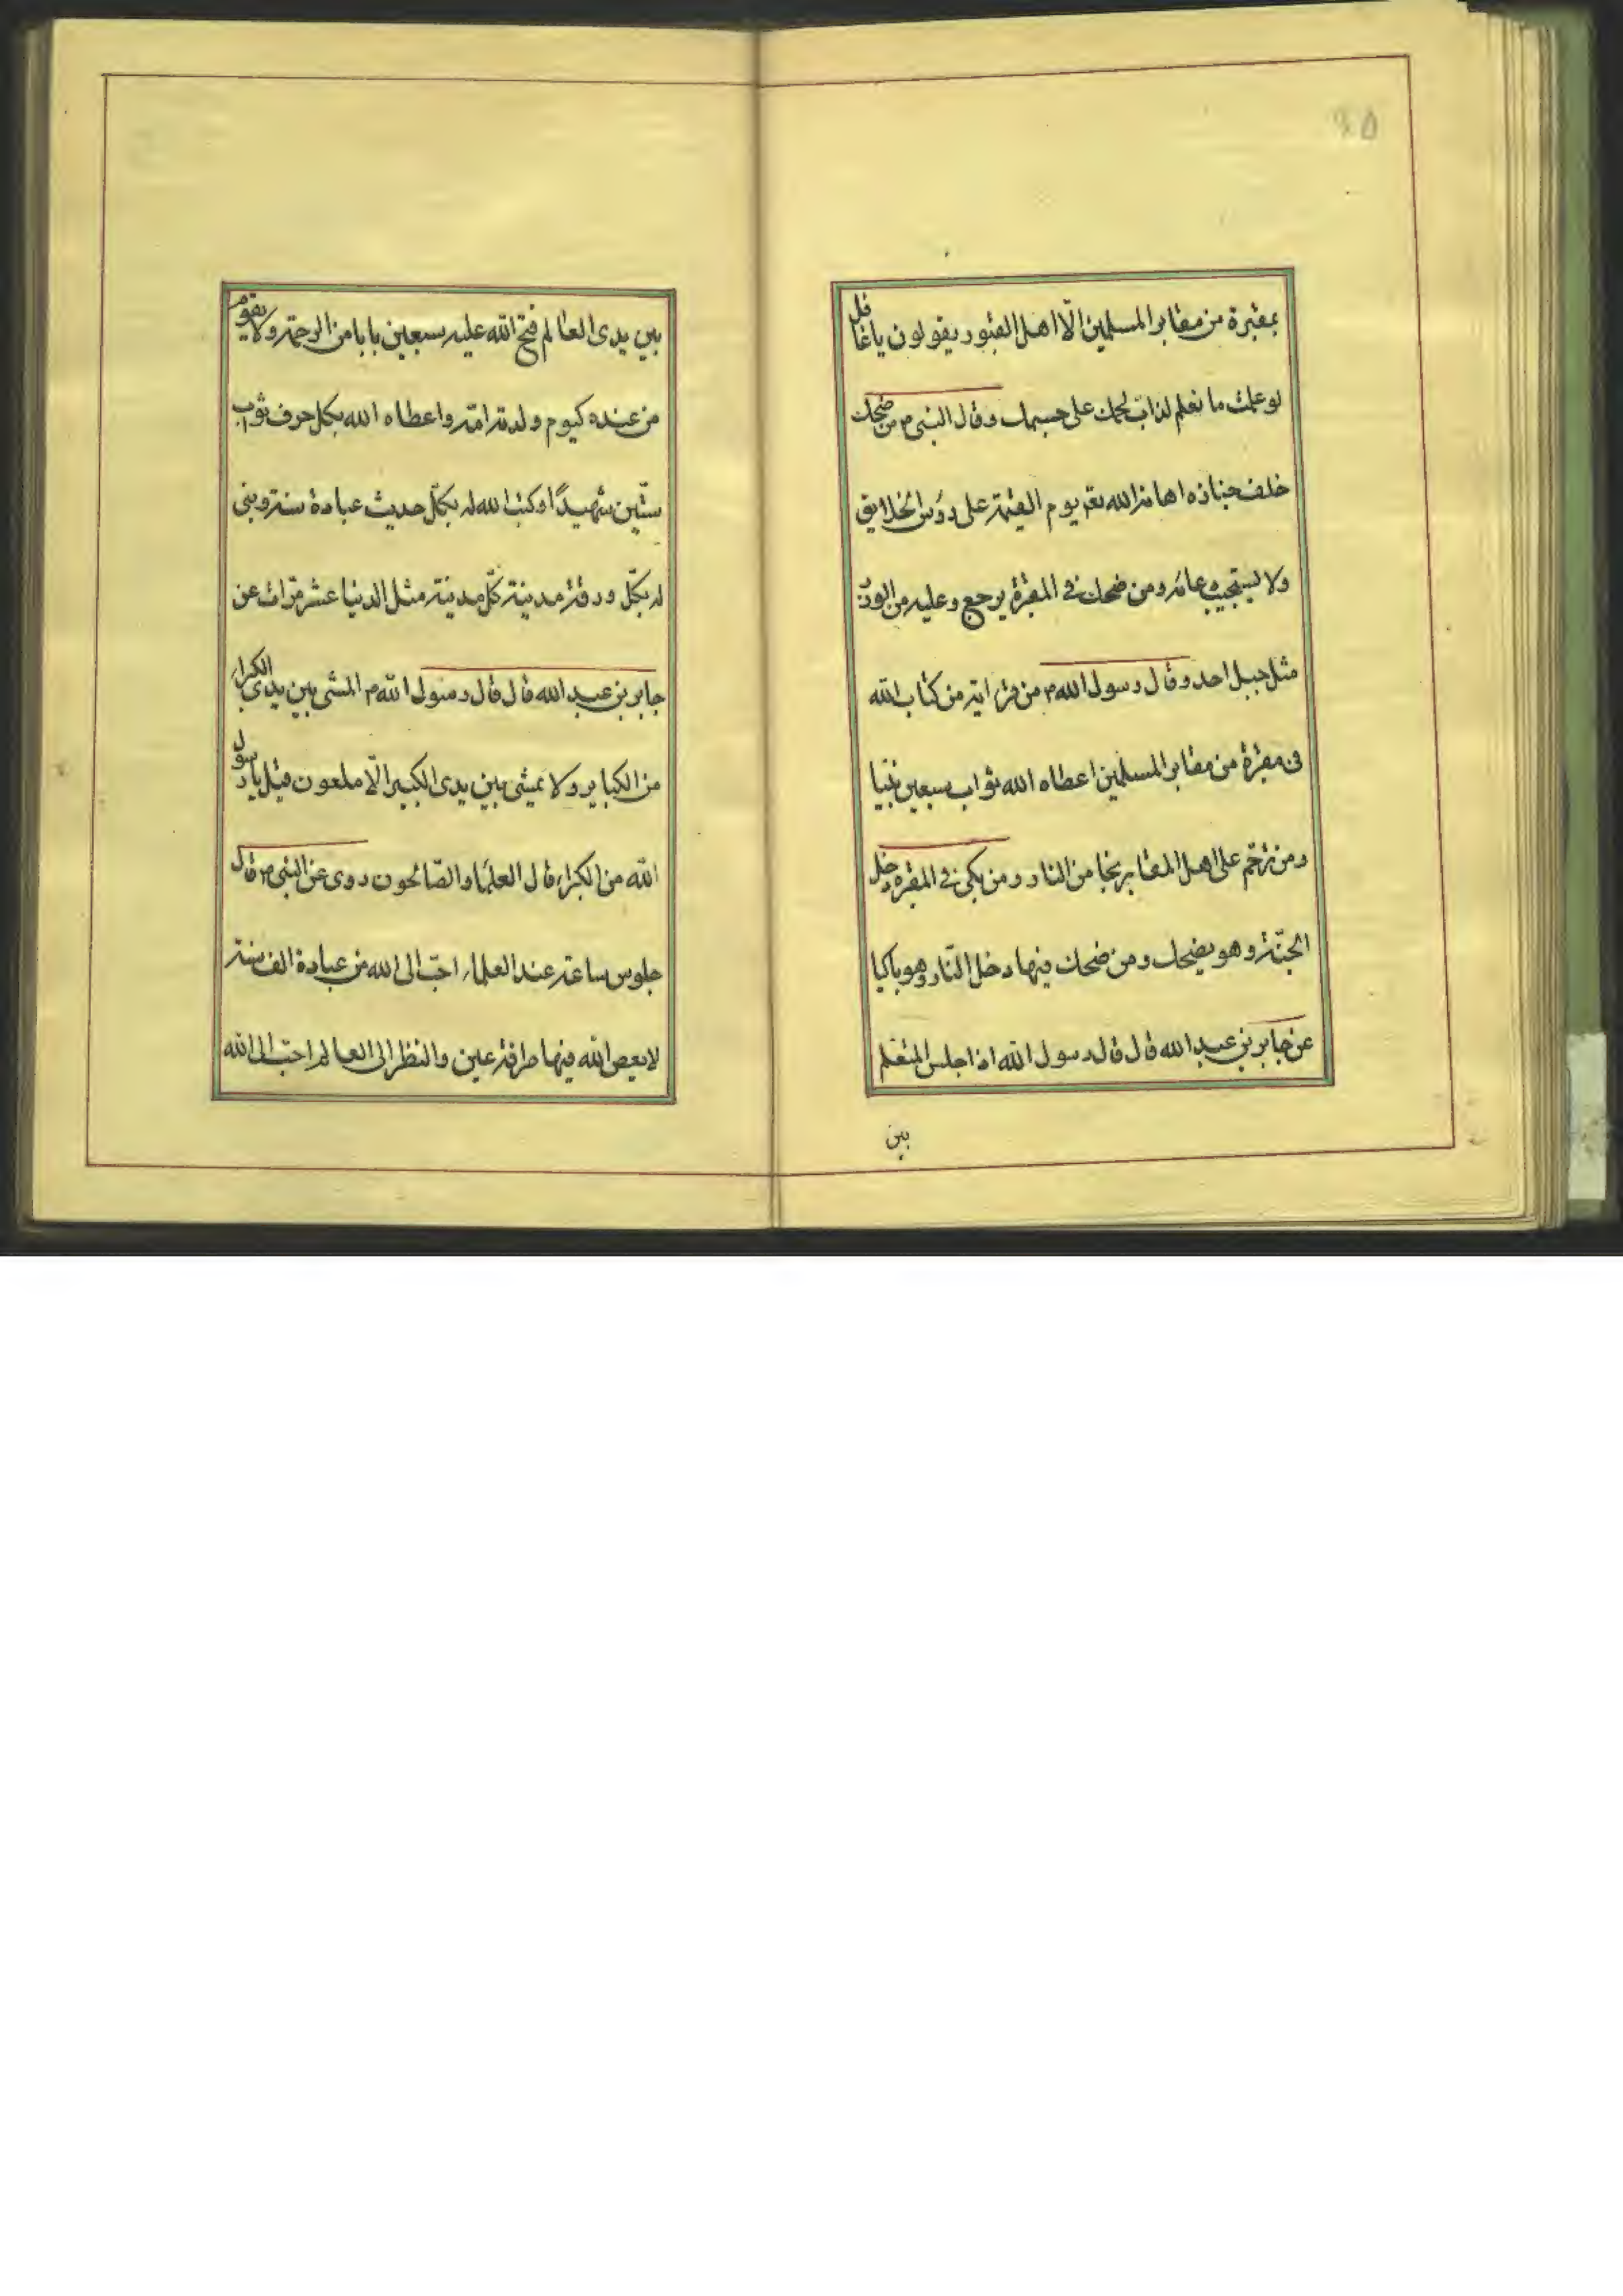 ٤٥
بمقبرة من مقابر المسلمين الّا اهل القبور يقولون يا غافل
لو علمت ما نعلم لذاب لحمك على جسمك وقال النبى م من ضحك
خلف جنازه اهانه الله تع يوم القيٰمة على رؤس الخلايق
ولا يستجيب دعائه ومن ضحك فى المقبرة يرجع وعليه من الوزر
مثل جبل احد وقال رسول الله م من قرء اية من كتاب الله
فى مقبرة من مقابر المسلمين اعطاه الله ثواب سبعين نبيا
ومن ترحّم على اهل المقابر نجا من النار ومن بكى فى المقبره دخل
الجنّة وهو يضحك ومن ضحك فيها دخل النّار وهو باكيا
عن جابر بن عبد الله قال قال رسول الله اذا جلس المتعلم
بين
بين يدى العالم فتح الله عليه سبعين بابا من الرحمة ولا يقوم
من عنده كيوم ولدته امّه واعطاه الله بكل حرف ثواب
ستّين شهيدًا وكتب الله له بكلّ حديث عبادة سنة وبنى
له بكلّ ورقة مدينة كلّ مدينة مثل الدنيا عشر مرّات عن
جابر بن عبد الله قال قال رسول الله م المشى بين يدى الكبراء
من الكباير ولا يمشى بين يدى الكبير الّا ملعون قيل يا رسول
الله من الكبراء قال العلماء والصّالحون روى عن النبى م قال
جلوس ساعة عند العلماء احبّ الى الله من عبادة الف سنة
لا يعص الله فيها طرفة عين والنظر الى العالم احبّ الى الله